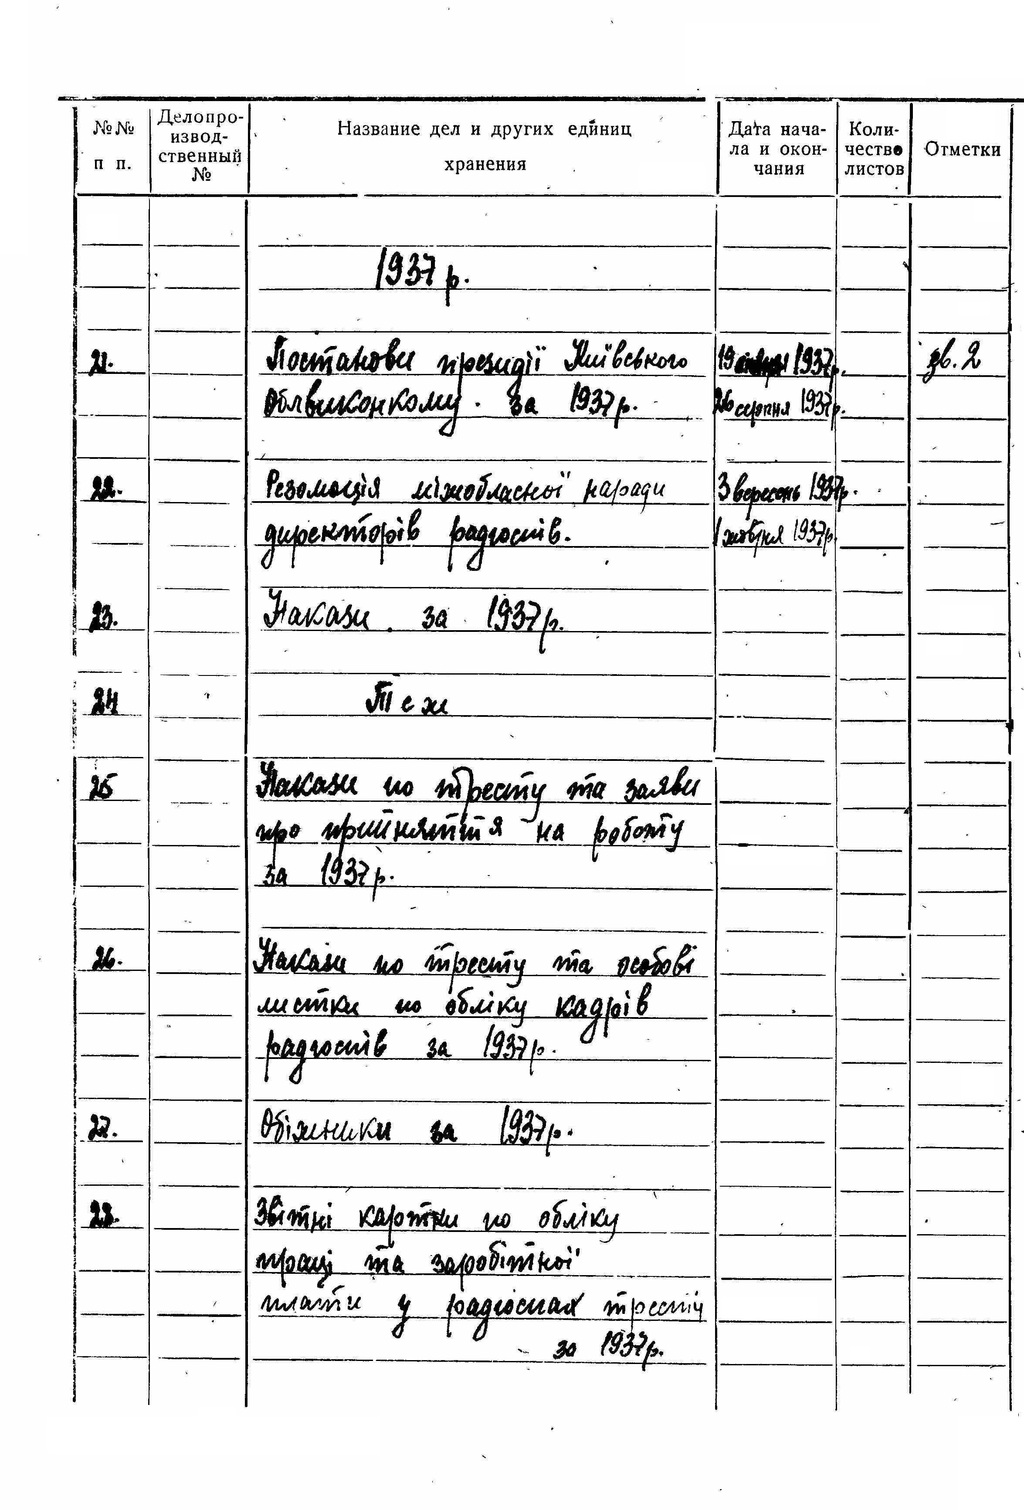 №№ п п.
Делопро-
извод-
ственный
№
Название дел и других единиц
хранения
Дата нача-
ла и окон-
чания
Коли-
чество
листов
Отметки
1937 р.
21. Постанови президії Київського 19 1937р. зв. 2
Облвиконкому за 1937р. 26 серпня 1937р.
22. Резолюція міжобласної наради 3 вересень 1937р.
директорів радгоспів. 1 жовтня 1937р.
23. Накази за 1937р.
24 Теж
25 Накази по тресту та заяви
про прийняття на роботу
за 1937р.
26. Накази по тресту та особові
листки по обліку кадрів
радгоспів за 1937р.
27. Обіжники за 1937р.
28. Звітні картки по обліку
праці та заробітної
плати у радгоспах тресту
за 1937р.